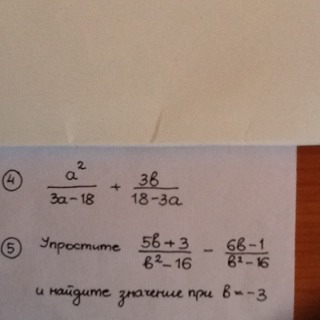 ④ a²/(3a-18) + 3в/(18-3a)
⑤ Упростите (5в+3)/(в²-16) - (6в-1)/(в²-16)
и найдите значение при в=-3